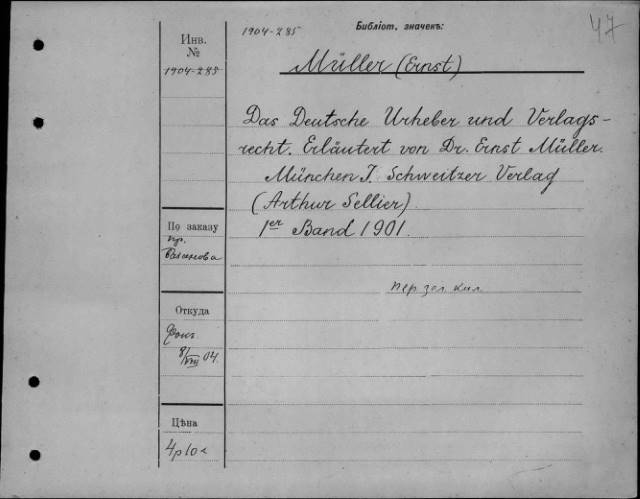 Библіот. значекъ:
1904-285
47
Инв.
№
1904-285
Müller (Ernst)
Das Deutsche Urheber und Verlags-
recht. Erläutert von Dr. Ernst Müller.
München J. Schweitzer Verlag
(Arthur Sellier).
1er Band 1901.
По заказу
пр.
пер зел кил
Откуда
Фокъ
8/VIII 04.
Цѣна
4р10к